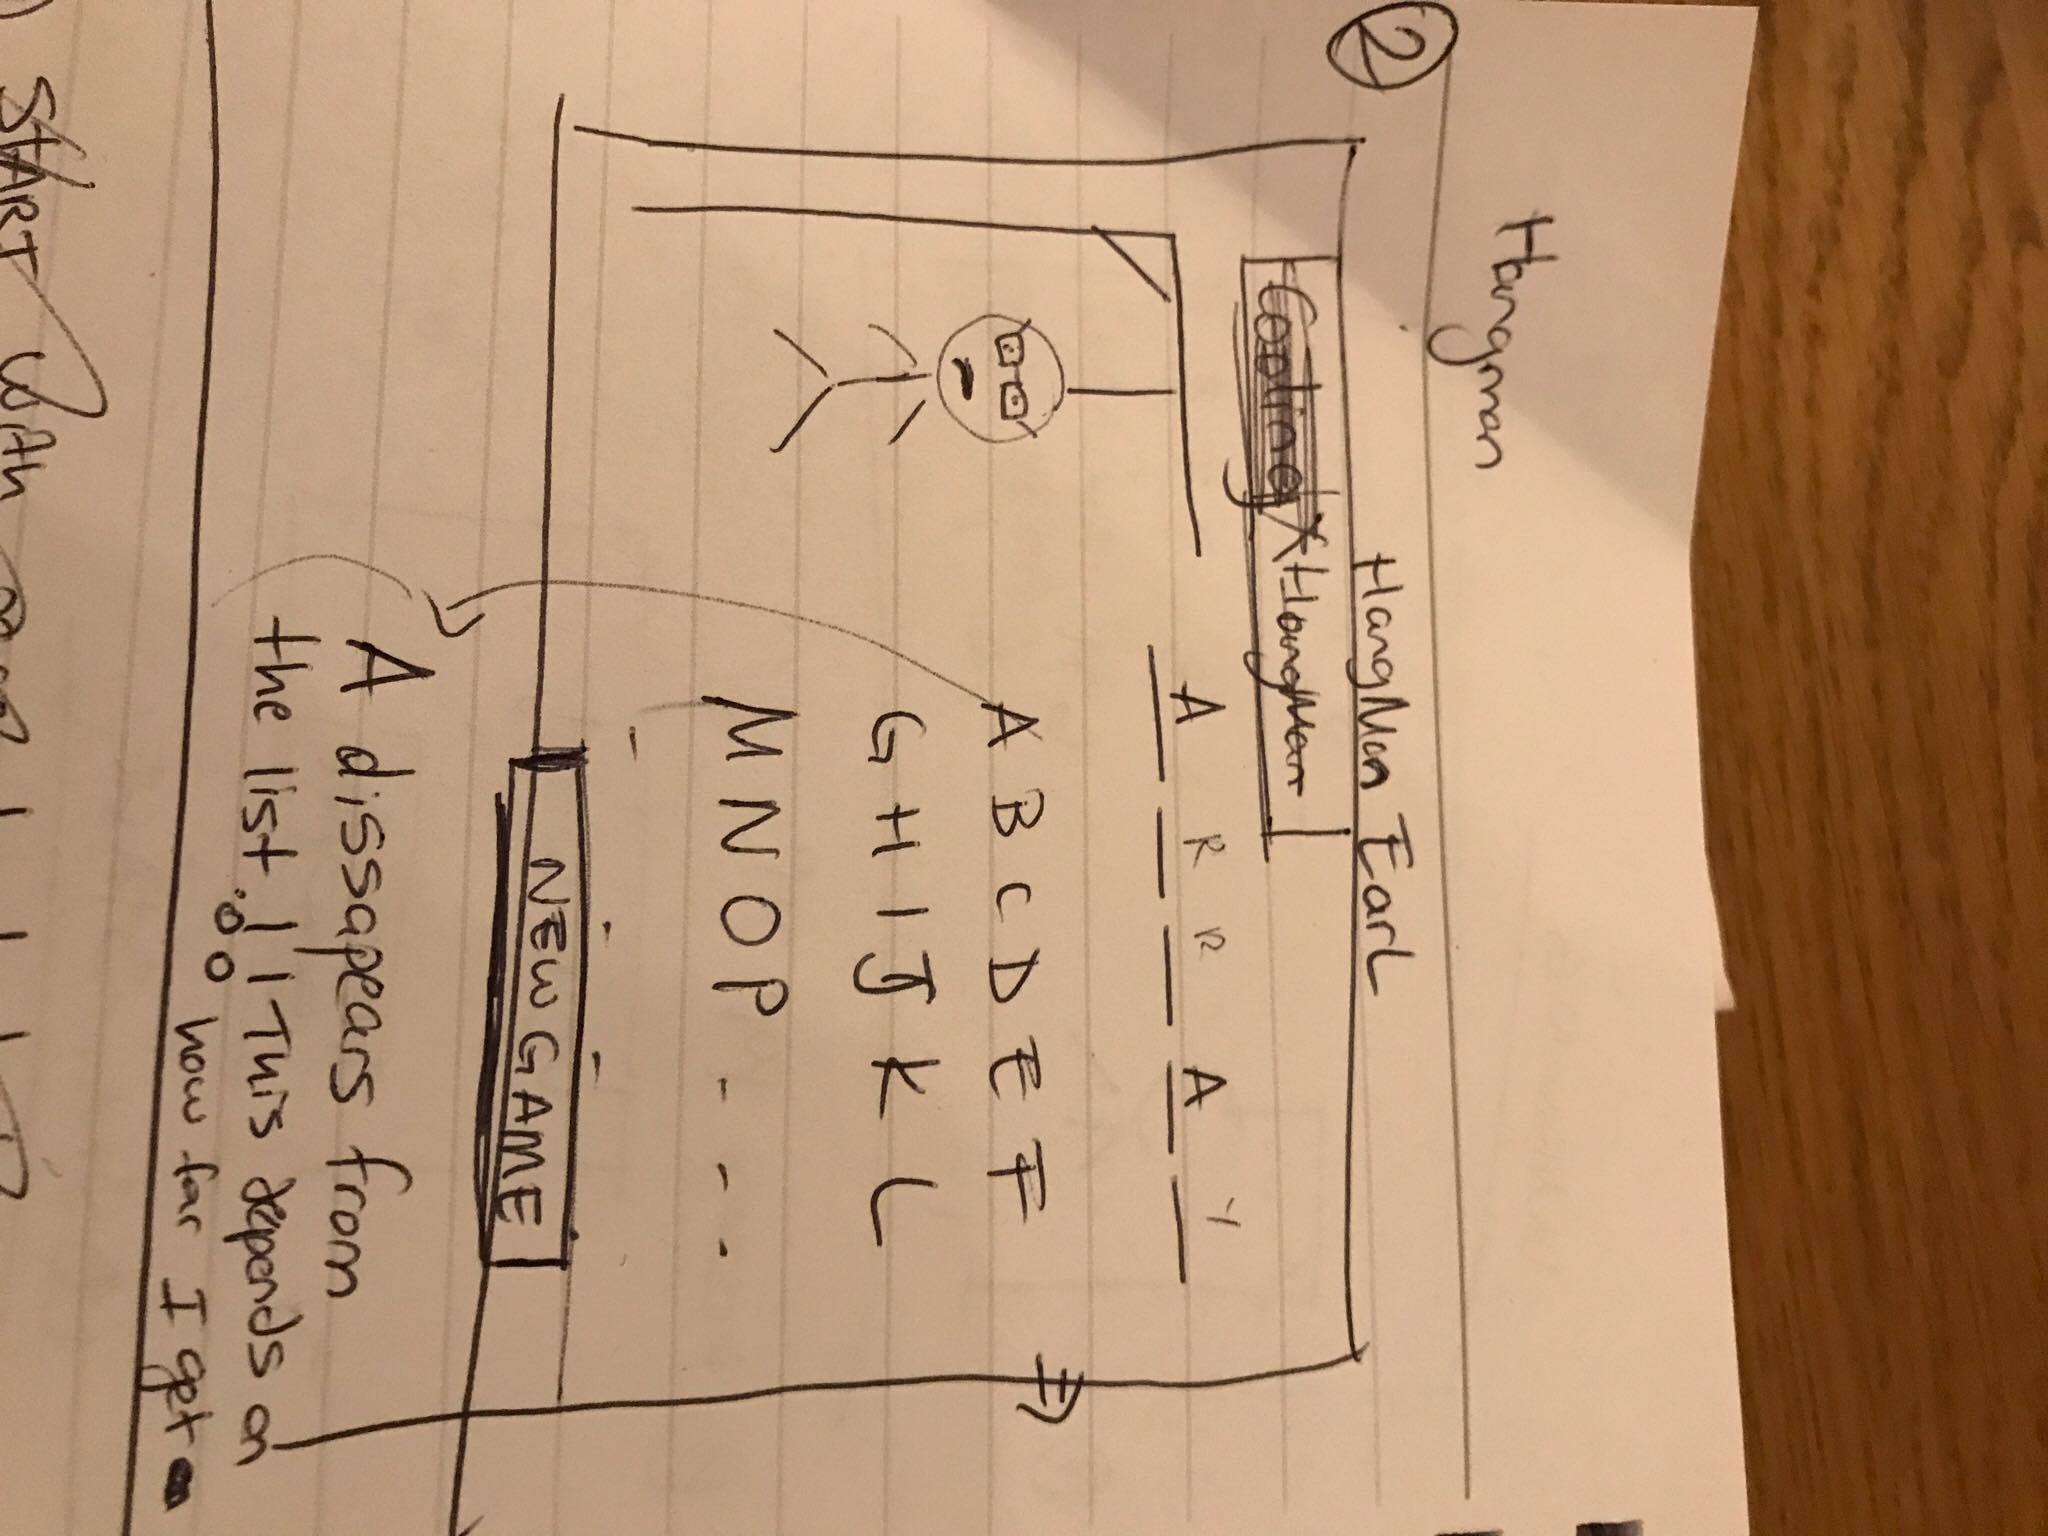 ②
Hangman
HangMan EarL
Coding X HangMan
A R R A Y
A B C D E F
G H I J K L
M N O P - - -
NEW GAME
A dissapears from
the list || This depends on
how far I get
START With